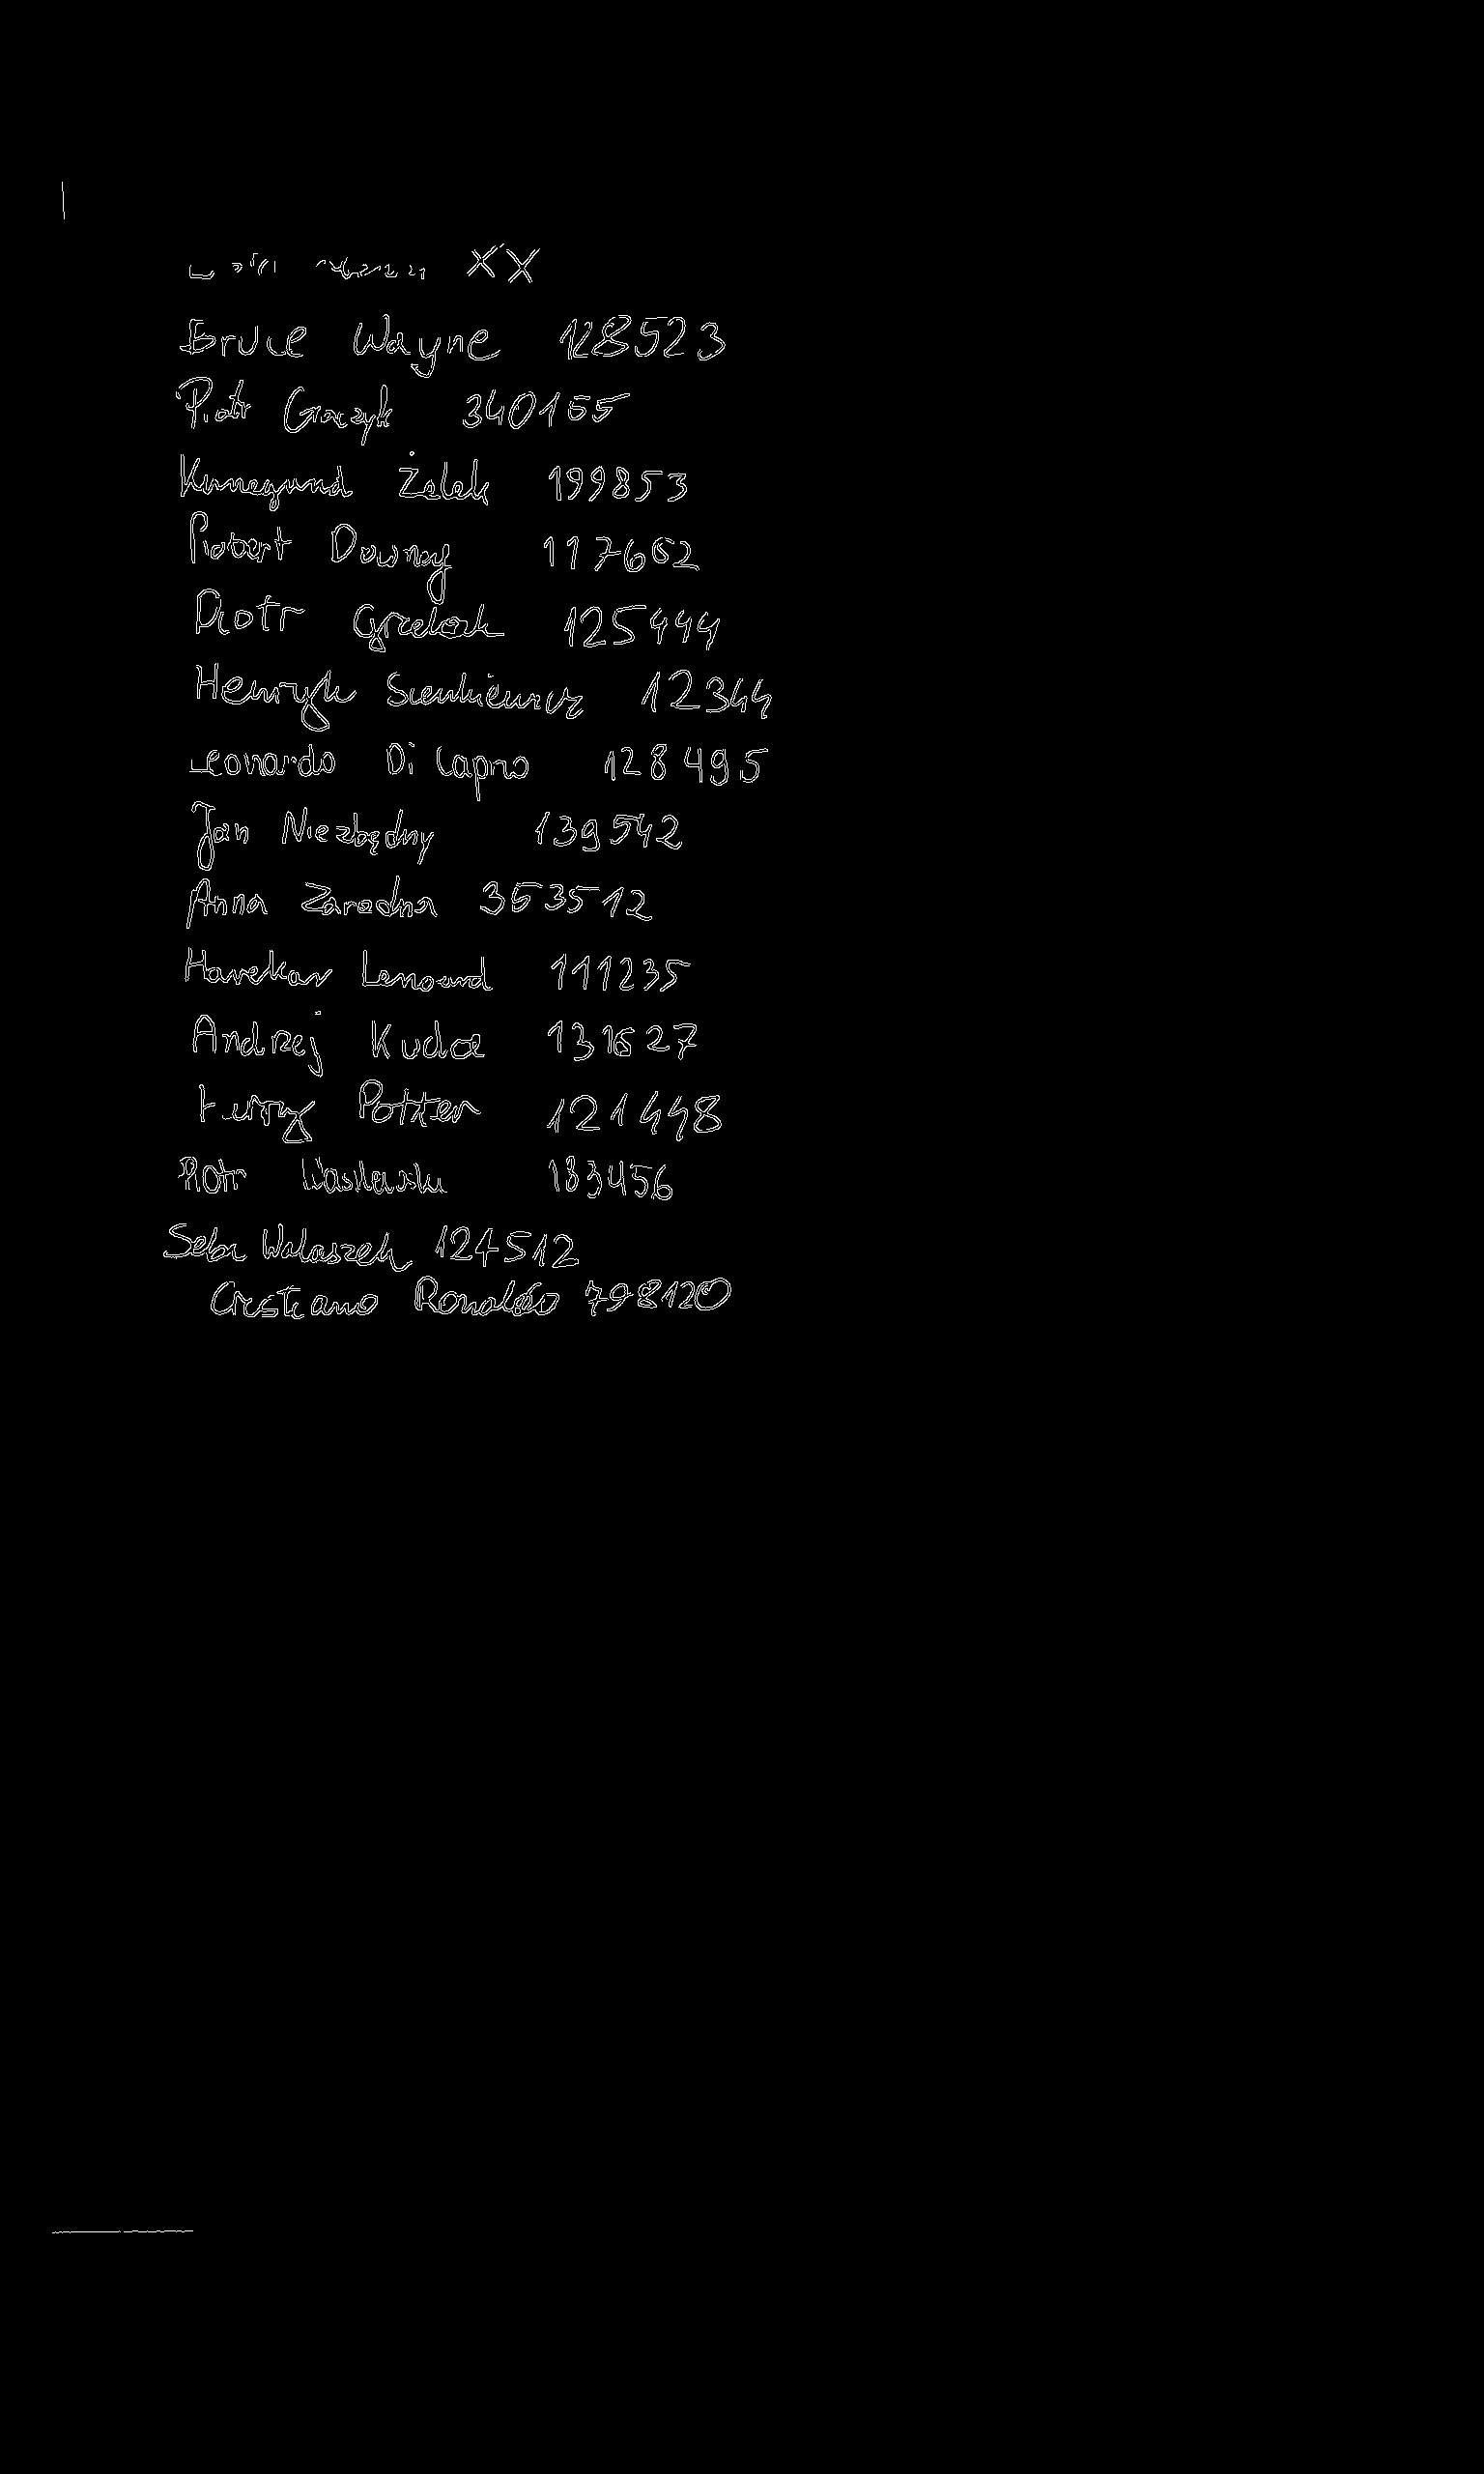 XX
Bruce Wayne 128523
Piotr Graczyk 340155
Kunegund Żelek 199853
Robert Downey 117662
Piotr Grzelak 125444
Henryk Sienkiewicz 12344
Leonardo Di Caprio 128495
Jan Niezbędny 139542
Anna Zaradna 353512
Lenoard 111235
Andrzej Kudca 131627
Harry Potter 121448
Piotr Wasilewski 183456
Seba Walaszek 124512
Crestiano Ronaldo 798120